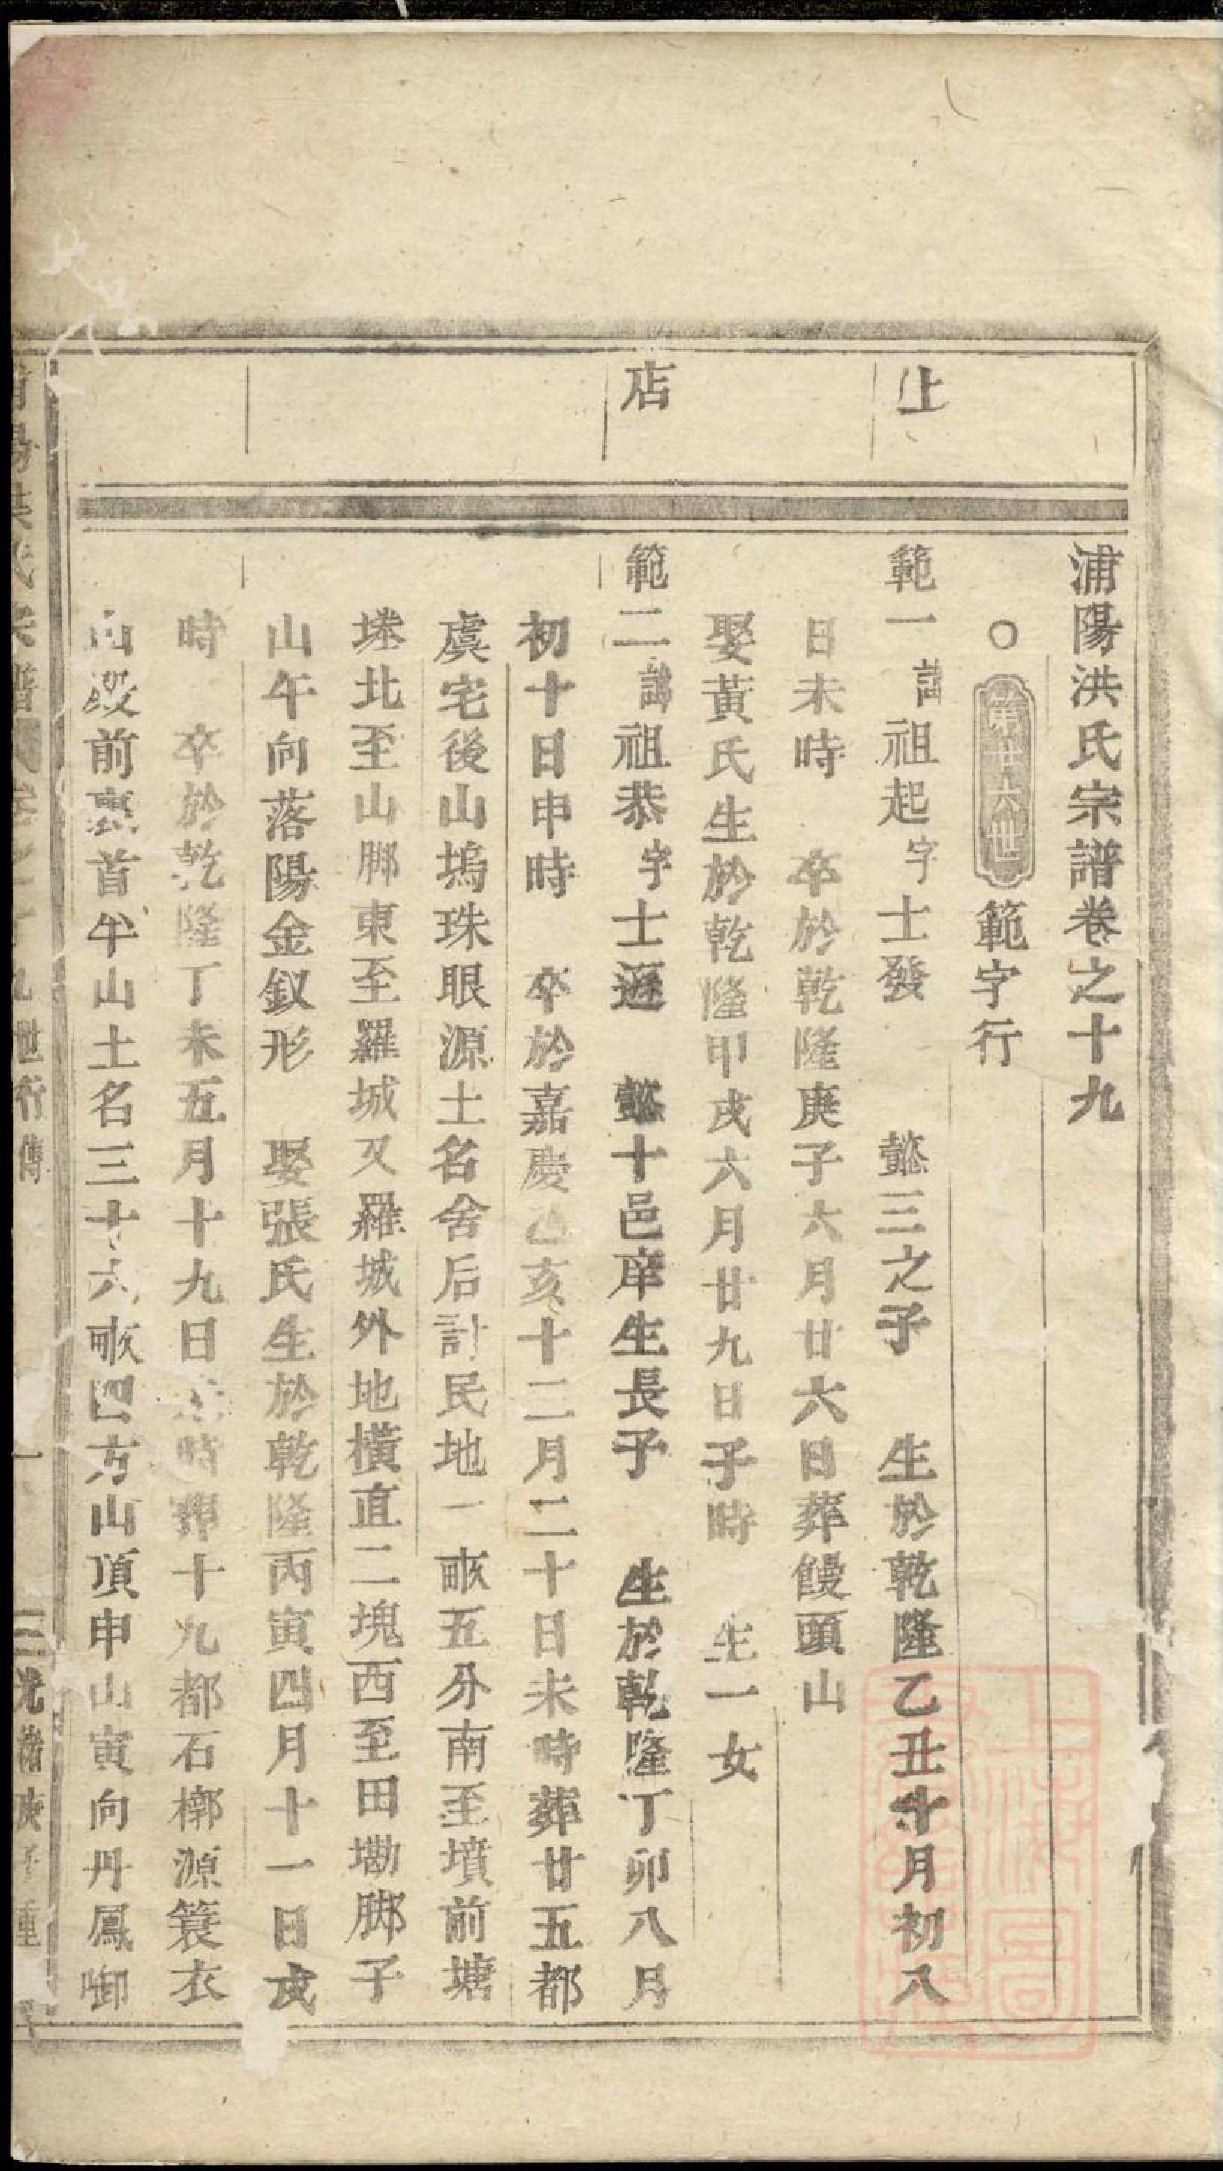 浦陽洪氏宗譜卷之十九
○第廿六世範字行
上
範一諱祖起字士發 懿三之子 生於乾隆乙丑十月初八
日未時 卒於乾隆庚子六月廿六日葬饅頭山
娶黃氏生於乾隆甲戌六月廿九日子時 生一女
店
範二諱祖恭字士遜 懿十邑庠生長子 生於乾隆丁卯八月
初十日申時 卒於嘉慶乙亥十二月二十日未時葬廿五都
虞宅後山塢珠眼源土名舍后計民地一畝五分南至墳前塘
塍北至山腳東至羅城又羅城外地橫直二塊西至田墈腳子
山午向落陽金釵形 娶張氏生於乾隆丙寅四月十一日戌
時 卒於乾隆丁未五月十九日時葬十九都石槨源簑衣
山殿前裏首半山土名三十六畝四方山頂申山寅向丹鳳啣
浦陽洪氏宗譜卷之十九世行傳 一 光緒庚子重